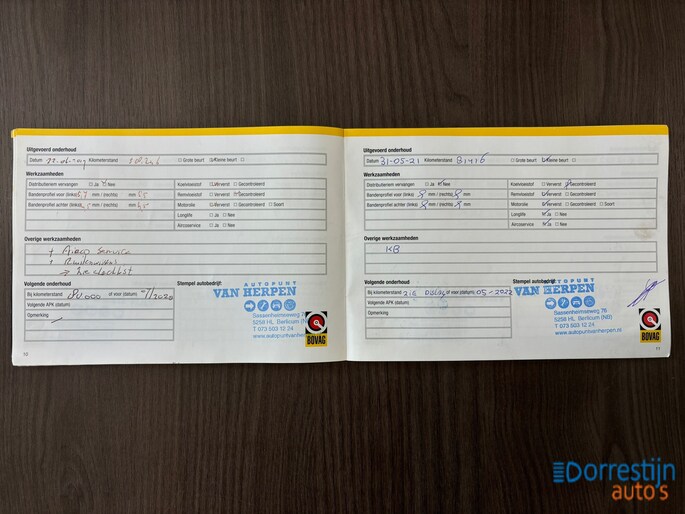 Uitgevoerd onderhoud
Datum Kilometerstand ☐ Grote beurt ☑ Kleine beurt ☐
Werkzaamheden
Distributieriem vervangen ☐ Ja ☑ Nee
Koelvloeistof ☐ Ververst ☐ Gecontroleerd
Bandenprofiel voor (links) mm / (rechts) mm
Remvloeistof ☐ Ververst ☐ Gecontroleerd
Bandenprofiel achter (links) mm / (rechts) mm
Motorolie ☐ Ververst ☐ Gecontroleerd ☐ Soort
Longlife ☐ Ja ☐ Nee
Aircoservice ☐ Ja ☐ Nee
Overige werkzaamheden
+ Airco Service
+
Volgende onderhoud
Bij kilometerstand of voor (datum)
Volgende APK (datum)
Opmerking
Stempel autobedrijf
AUTOPUNT
VAN HERPEN
Sassenheimseweg 76
5258 HL Berlicum (NB)
T 073 503 12 24
www.autopuntvanherpen
BOVAG
10
Uitgevoerd onderhoud
Datum 31-05-21 Kilometerstand 81416 ☐ Grote beurt ☑ Kleine beurt ☐
Werkzaamheden
Distributieriem vervangen ☐ Ja ☑ Nee
Koelvloeistof ☐ Ververst ☑ Gecontroleerd
Bandenprofiel voor (links) 8 mm / (rechts) 8 mm
Remvloeistof ☑ Ververst ☐ Gecontroleerd
Bandenprofiel achter (links) 8 mm / (rechts) 8 mm
Motorolie ☑ Ververst ☐ Gecontroleerd ☐ Soort
Longlife ☑ Ja ☐ Nee
Aircoservice ☑ Ja ☐ Nee
Overige werkzaamheden
KB
Volgende onderhoud
Bij kilometerstand zie display of voor (datum) 05-2022
Volgende APK (datum)
Opmerking
Stempel autobedrijf
AUTOPUNT
VAN HERPEN
Sassenheimseweg 76
5258 HL Berlicum (NB)
T 073 503 12 24
www.autopuntvanherpen.nl
BOVAG
11
Dorrestijn
auto's